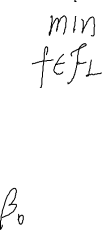 min
f∈ℱ_L
β₀